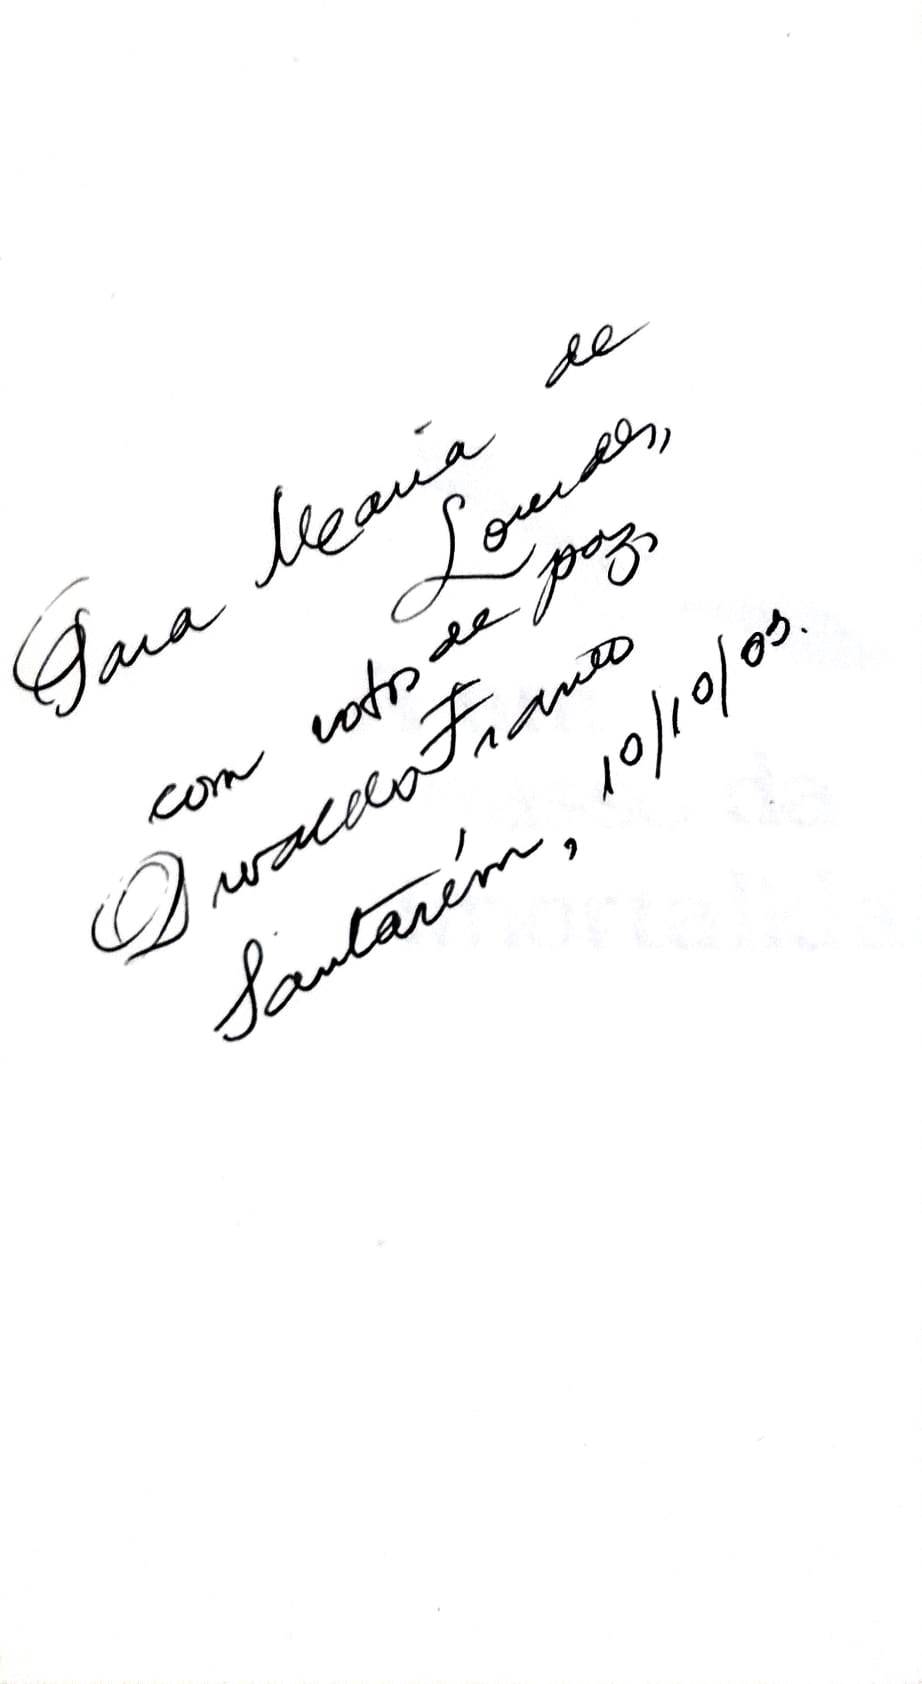 Para Maria de
Lourdes,
com votos de paz,
Divaldo Franco
Santarém, 10/10/03.